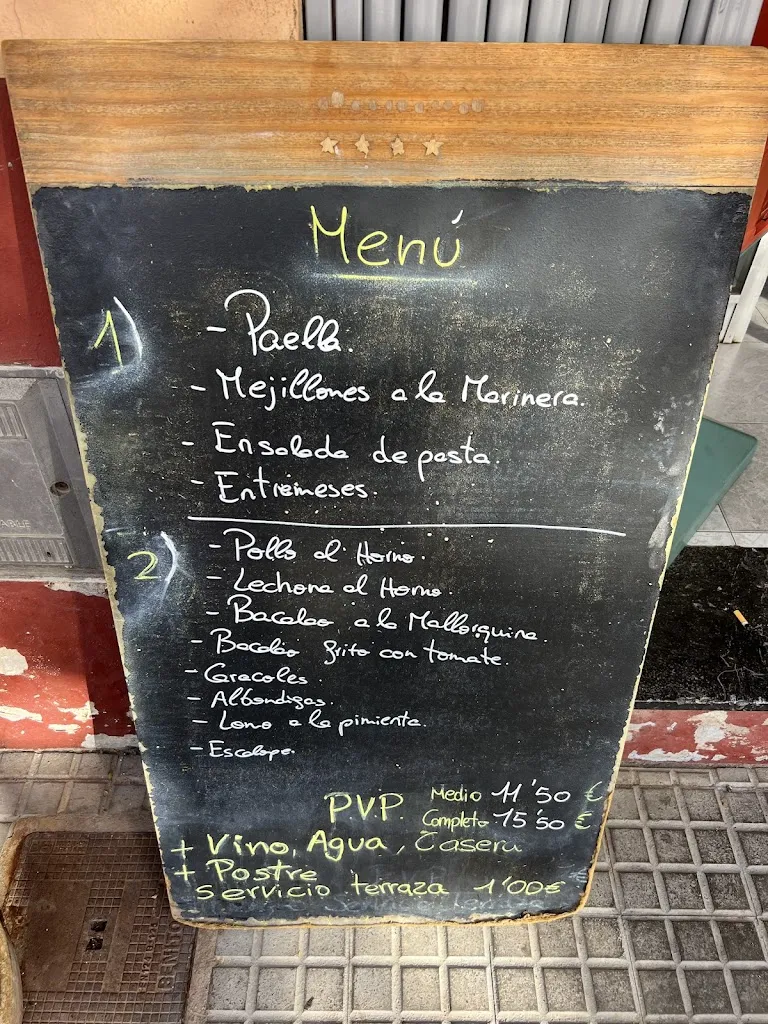 Menú
1)
- Paella.
- Mejillones a la Marinera.
- Ensalada de pasta.
- Entremeses.
2)
- Pollo al Horno.
- Lechona al Horno.
- Bacalao a la Mallorquina.
- Bacalao frito con tomate.
- Caracoles.
- Albondigas.
- Lomo a la pimienta.
- Escalope.
P.V.P. Medio 11'50 €
Completo 15'50 €
+ Vino, Agua, Casera
+ Postre
servicio terraza 1'00€